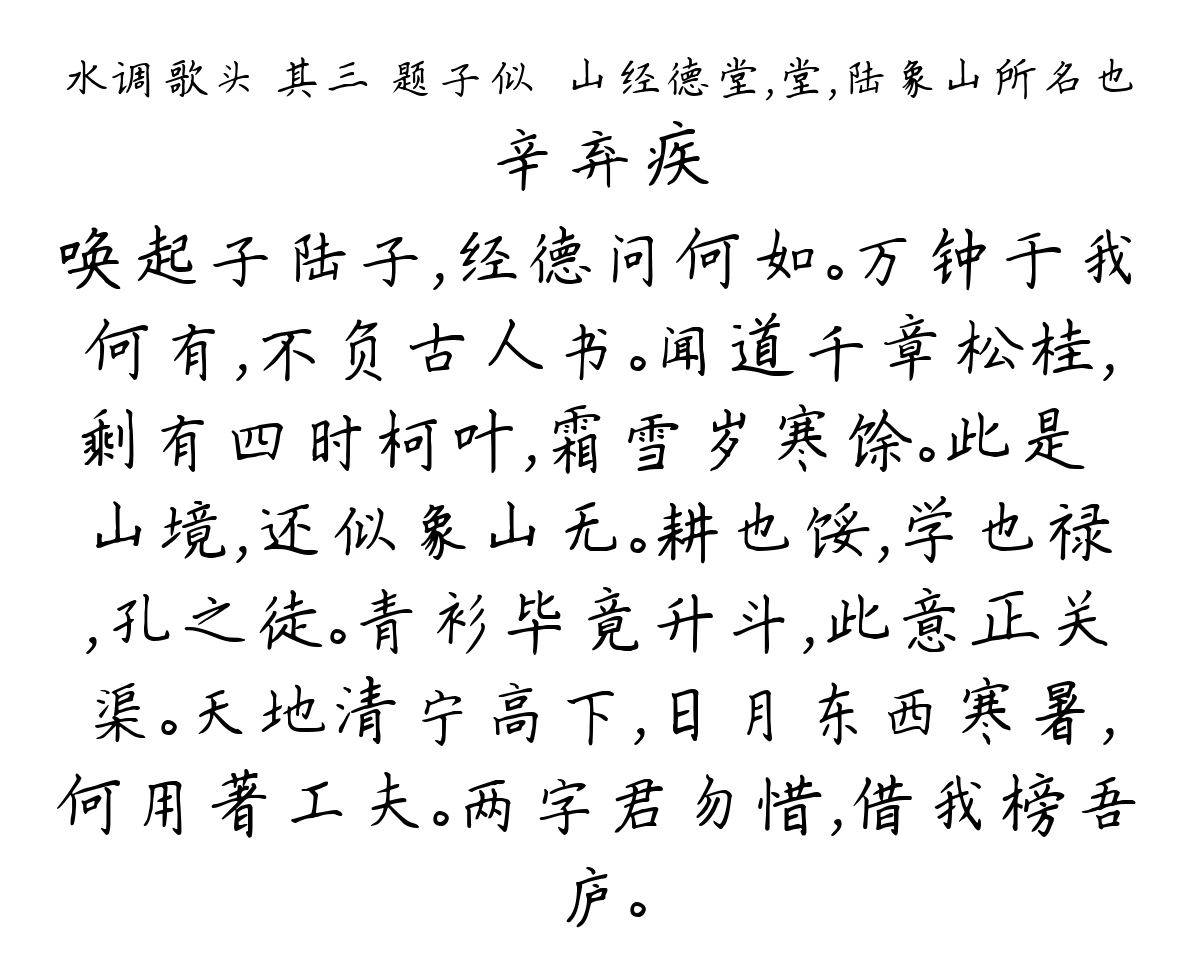 水调歌头 其三 题子似 山经德堂,堂,陆象山所名也
辛弃疾
唤起子陆子,经德问何如。万钟于我
何有,不负古人书。闻道千章松桂,
剩有四时柯叶,霜雪岁寒馀。此是
山境,还似象山无。耕也馁,学也禄
,孔之徒。青衫毕竟升斗,此意正关
渠。天地清宁高下,日月东西寒暑,
何用著工夫。两字君勿惜,借我榜吾
庐。